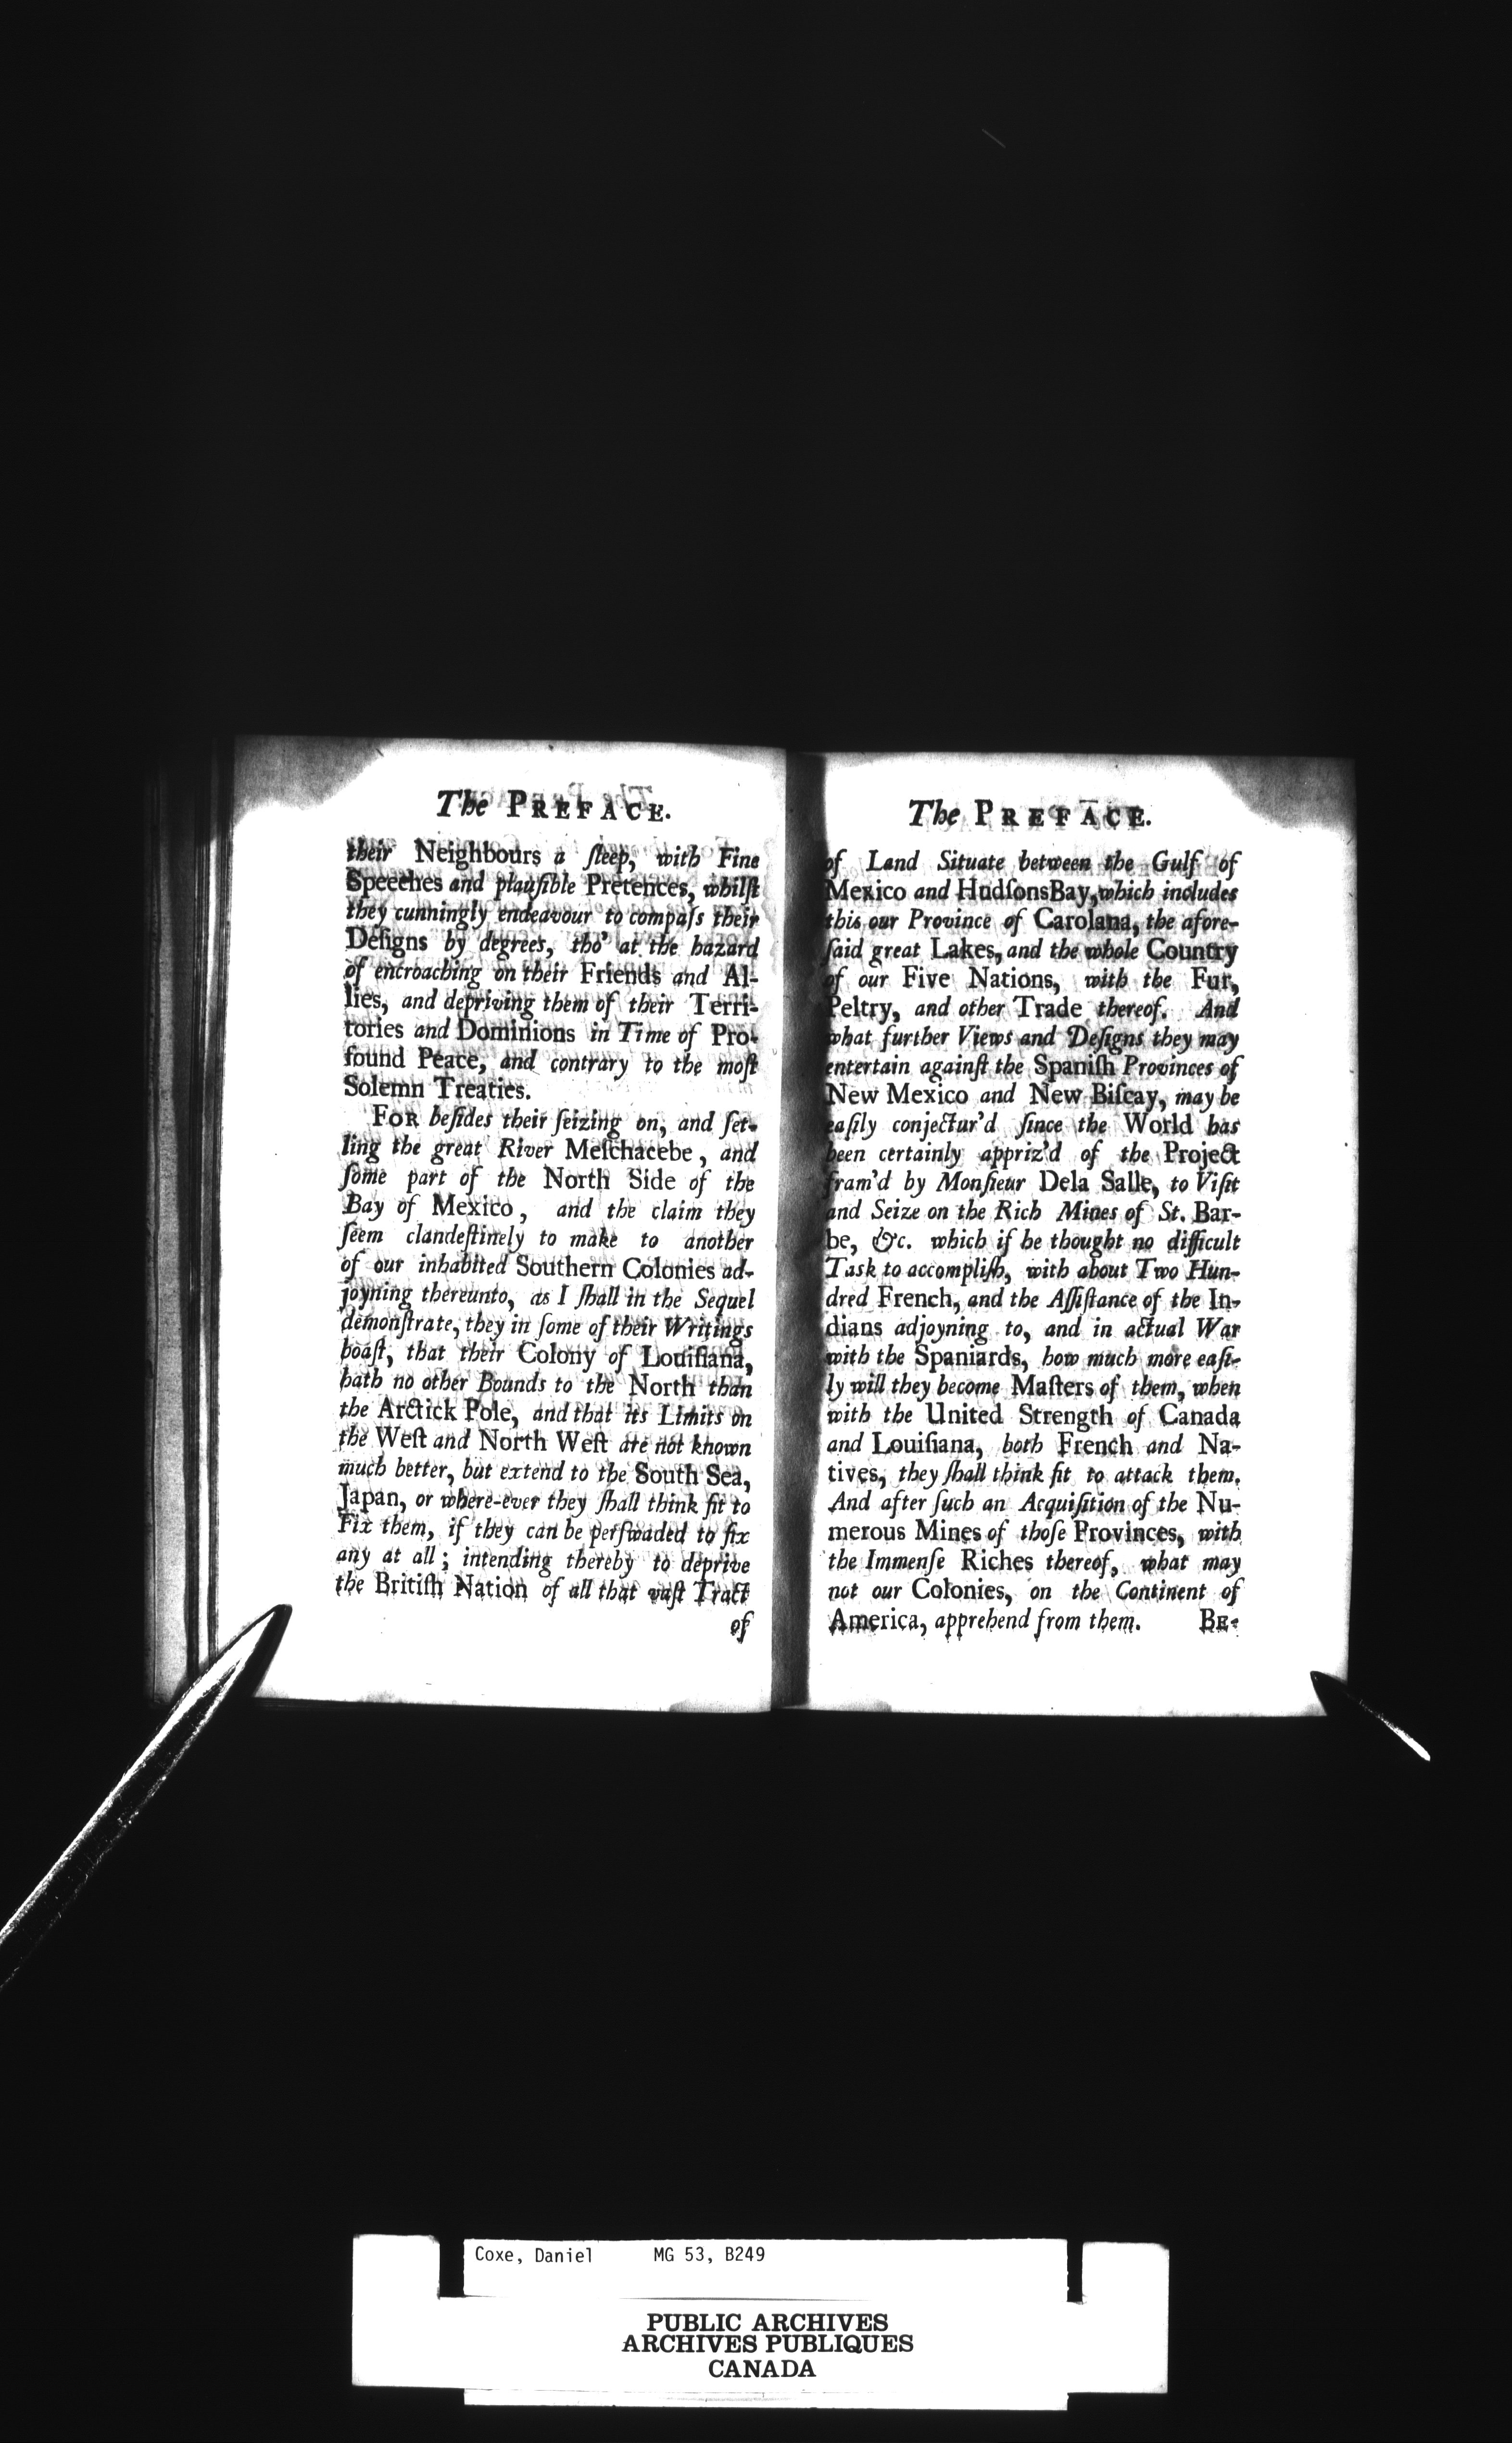 The PREFACE.
their Neighbours a ſleep, with Fine
Speeches and plauſible Pretences, whilſt
they cunningly endeavour to compaſs their
Deſigns by degrees, tho' at the hazard
of encroaching on their Friends and Al-
lies, and depriving them of their Terri-
tories and Dominions in Time of Pro-
found Peace, and contrary to the moſt
Solemn Treaties.
FOR beſides their ſeizing on, and ſet-
ling the great River Meſchacebe, and
ſome part of the North Side of the
Bay of Mexico, and the claim they
ſeem clandeſtinely to make to another
of our inhabited Southern Colonies ad-
joyning thereunto, as I ſhall in the Sequel
demonſtrate, they in ſome of their Writings
boaſt, that their Colony of Louiſiana,
hath no other Bounds to the North than
the Arctick Pole, and that its Limits on
the Weſt and North Weſt are not known
much better, but extend to the South Sea,
Japan, or where-ever they ſhall think fit to
Fix them, if they can be perſwaded to fix
any at all; intending thereby to deprive
the Britiſh Nation of all that vaſt Tract
of
The PREFACE.
of Land Situate between the Gulf of
Mexico and HudſonsBay, which includes
this our Province of Carolana, the afore-
ſaid great Lakes, and the whole Country
of our Five Nations, with the Fur,
Peltry, and other Trade thereof. And
what further Views and Deſigns they may
entertain againſt the Spaniſh Provinces of
New Mexico and New Biſcay, may be
eaſily conjectur'd ſince the World has
been certainly appriz'd of the Project
fram'd by Monſieur Dela Salle, to Viſit
and Seize on the Rich Mines of St. Bar-
be, &c. which if he thought no difficult
Task to accompliſh, with about Two Hun-
dred French, and the Aſſiſtance of the In-
dians adjoyning to, and in actual War
with the Spaniards, how much more eaſi-
ly will they become Maſters of them, when
with the United Strength of Canada
and Louiſiana, both French and Na-
tives, they ſhall think fit to attack them.
And after ſuch an Acquiſition of the Nu-
merous Mines of thoſe Provinces, with
the Immenſe Riches thereof, what may
not our Colonies, on the Continent of
America, apprehend from them. BE-
Coxe, Daniel MG 53, B249
PUBLIC ARCHIVES
ARCHIVES PUBLIQUES
CANADA